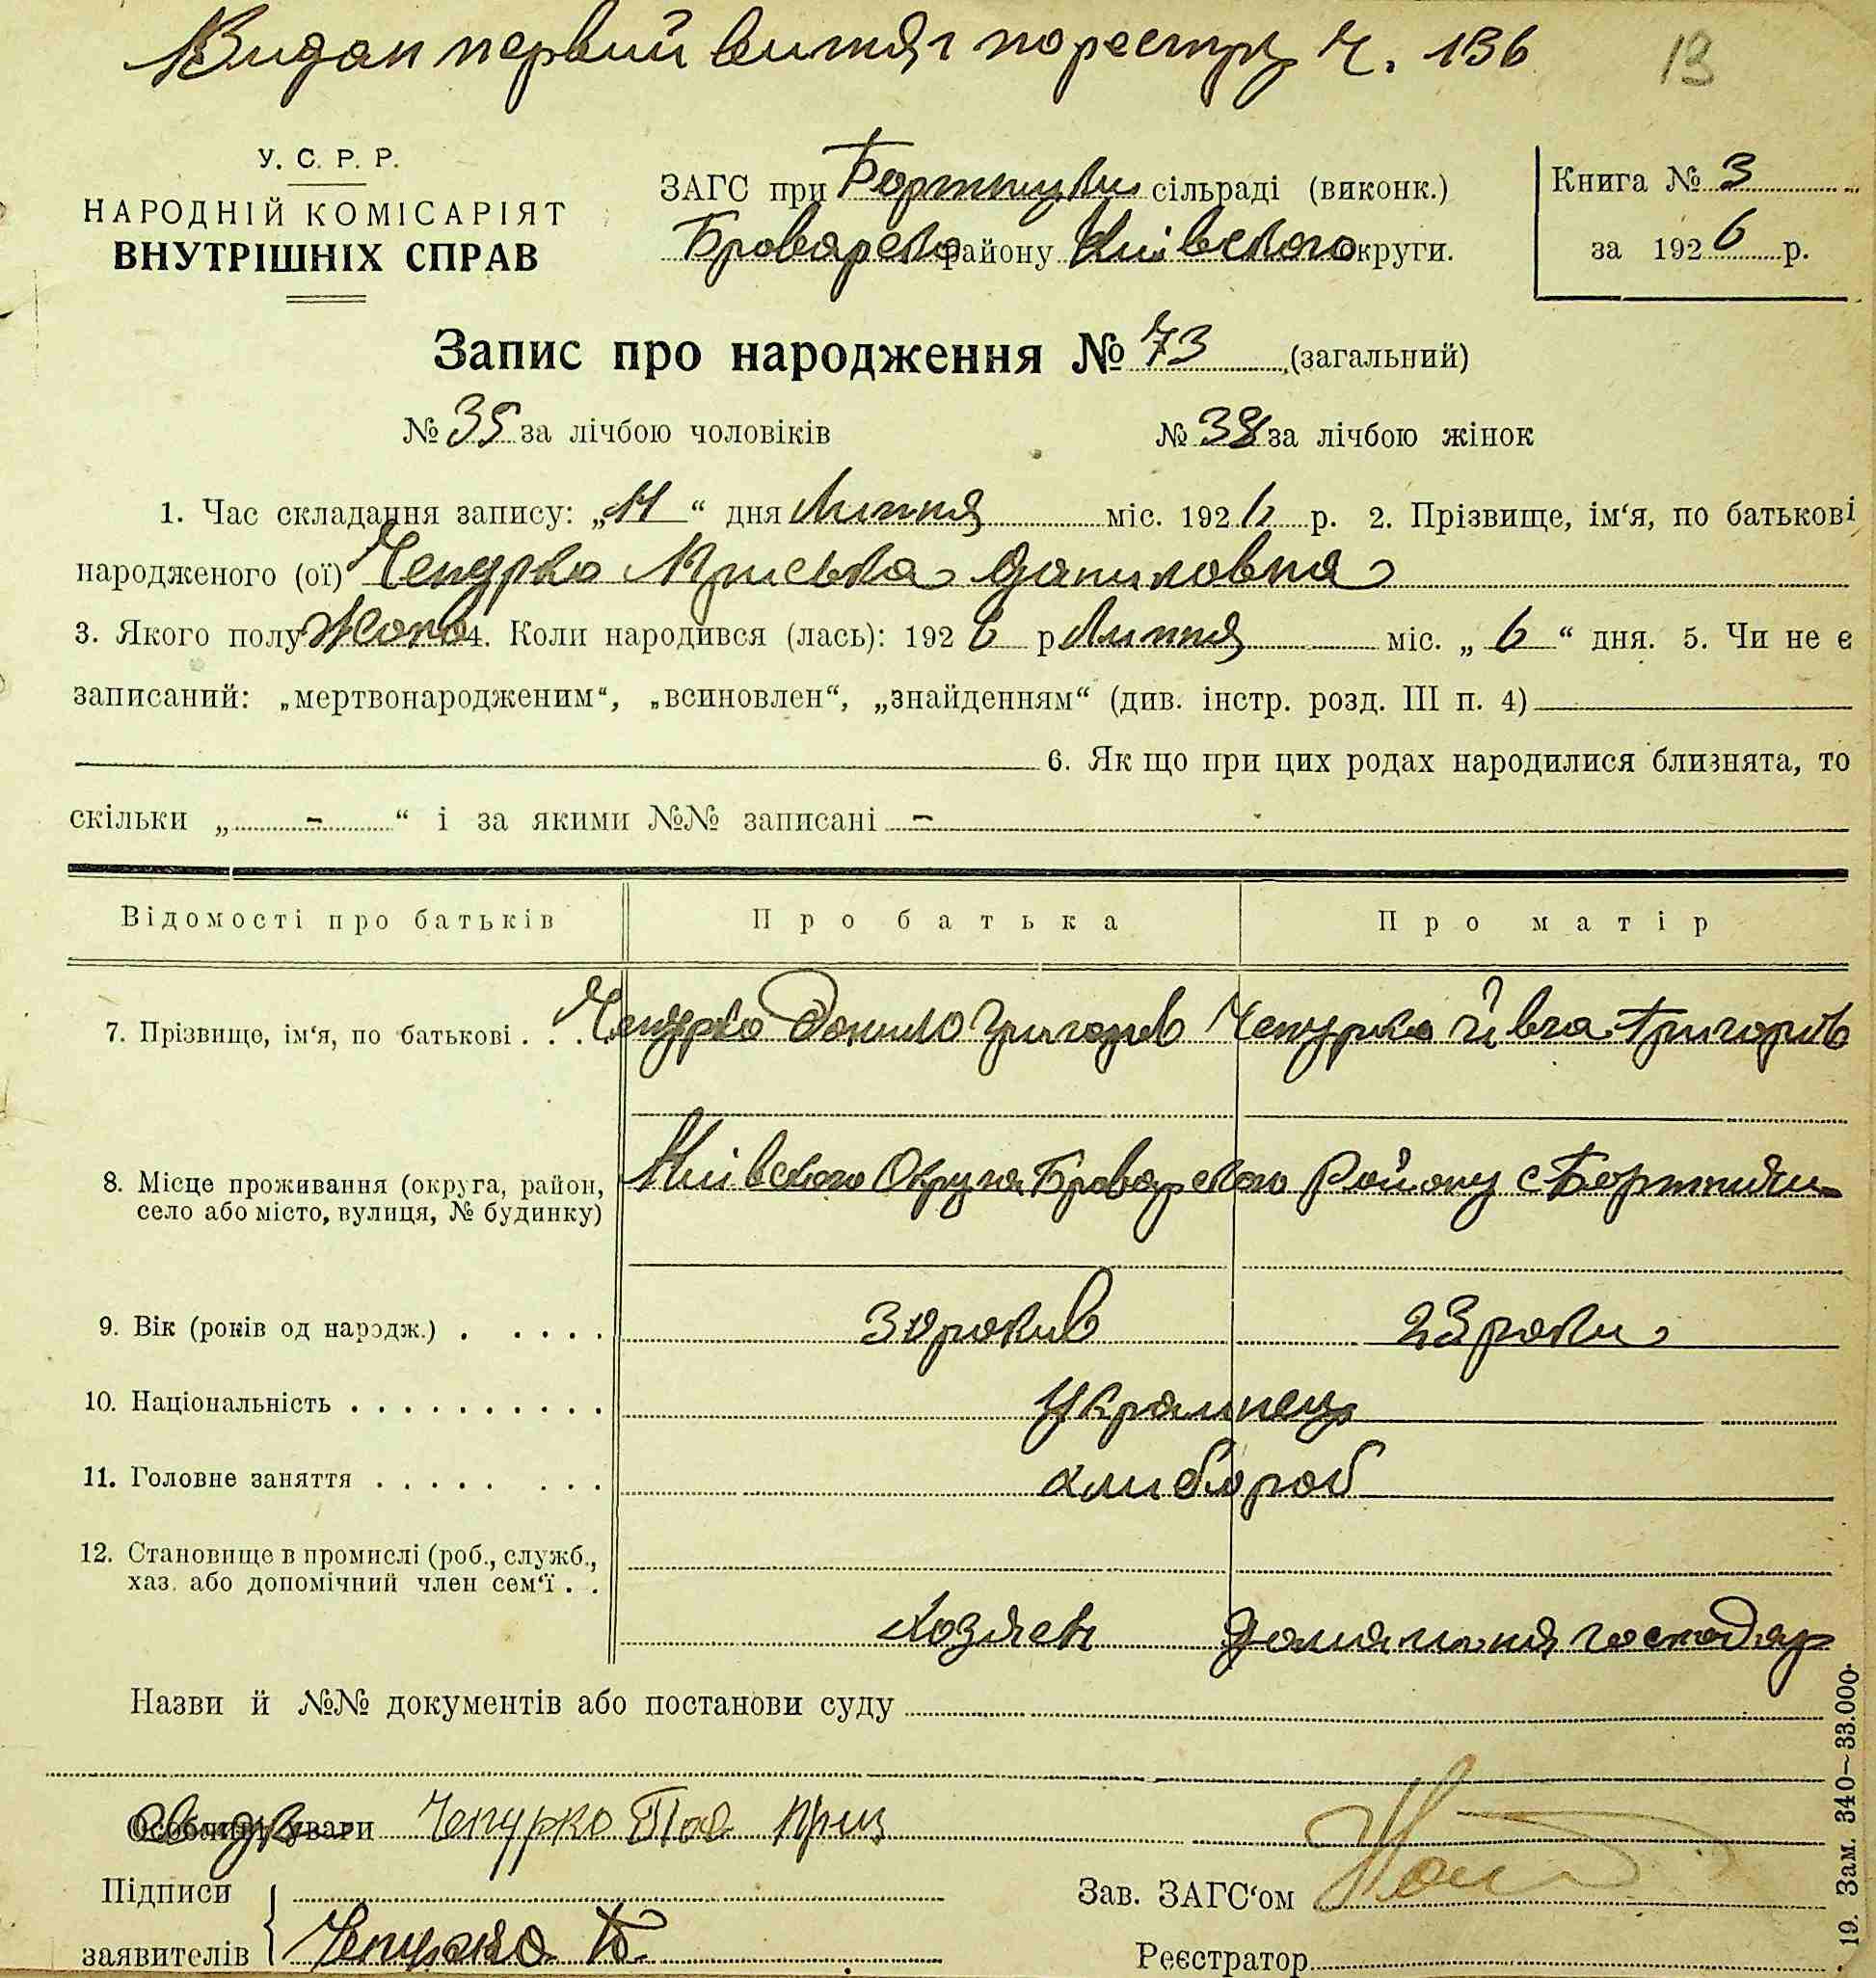 Видан первий витяг по реестру Ч. 136
13
У. С. Р. Р.
НАРОДНІЙ КОМІСАРІЯТ
ВНУТРІШНІХ СПРАВ
ЗАГС при Бортницки сільраді (виконк.)
Броварско району Київского округи.
Книга № 3
за 1926 р.
Запис про народження № 73 (загальний)
№ 35 за лічбою чоловіків № 38 за лічбою жінок
1. Час складання запису: „11“ дня Липня міс. 1926 р. 2. Прізвище, ім‘я, по батькові
народженого (ої) Чепурко Приська Даниловна
3. Якого полу Жоно 4. Коли народився (лась): 1926 р Липня міс. „6“ дня. 5. Чи не є
записаний: „мертвонародженим“, „всиновлен“, „знайденням“ (див. інстр. розд. III п. 4)
6. Як що при цих родах народилися близнята, то
скільки „ - “ і за якими №№ записані -
Відомості про батьків Про батька Про матір
7. Прізвище, ім‘я, по батькові . . . . Чепурко Данило Григоров Чепурко Ивга Григоров
8. Місце проживання (округа, район, село або місто, вулиця, № будинку) Київского Округа Броварского Району с Бортничи
9. Вік (років од народж.) . . . . . 30 рокив 23 роки
10. Національність . . . . . . . . . . Украинец
11. Головне заняття . . . . . . . . хлибороб
12. Становище в промислі (роб., служб.,
хаз. або допомічний член сем‘ї . .
Хозяен Домашния господар
Назви й №№ документів або постанови суду
Особливі уваги Чепурко
Підписи
заявителів Чепурко
Зав. ЗАГС‘ом
Реєстратор
19. Зам. 340—33.000.